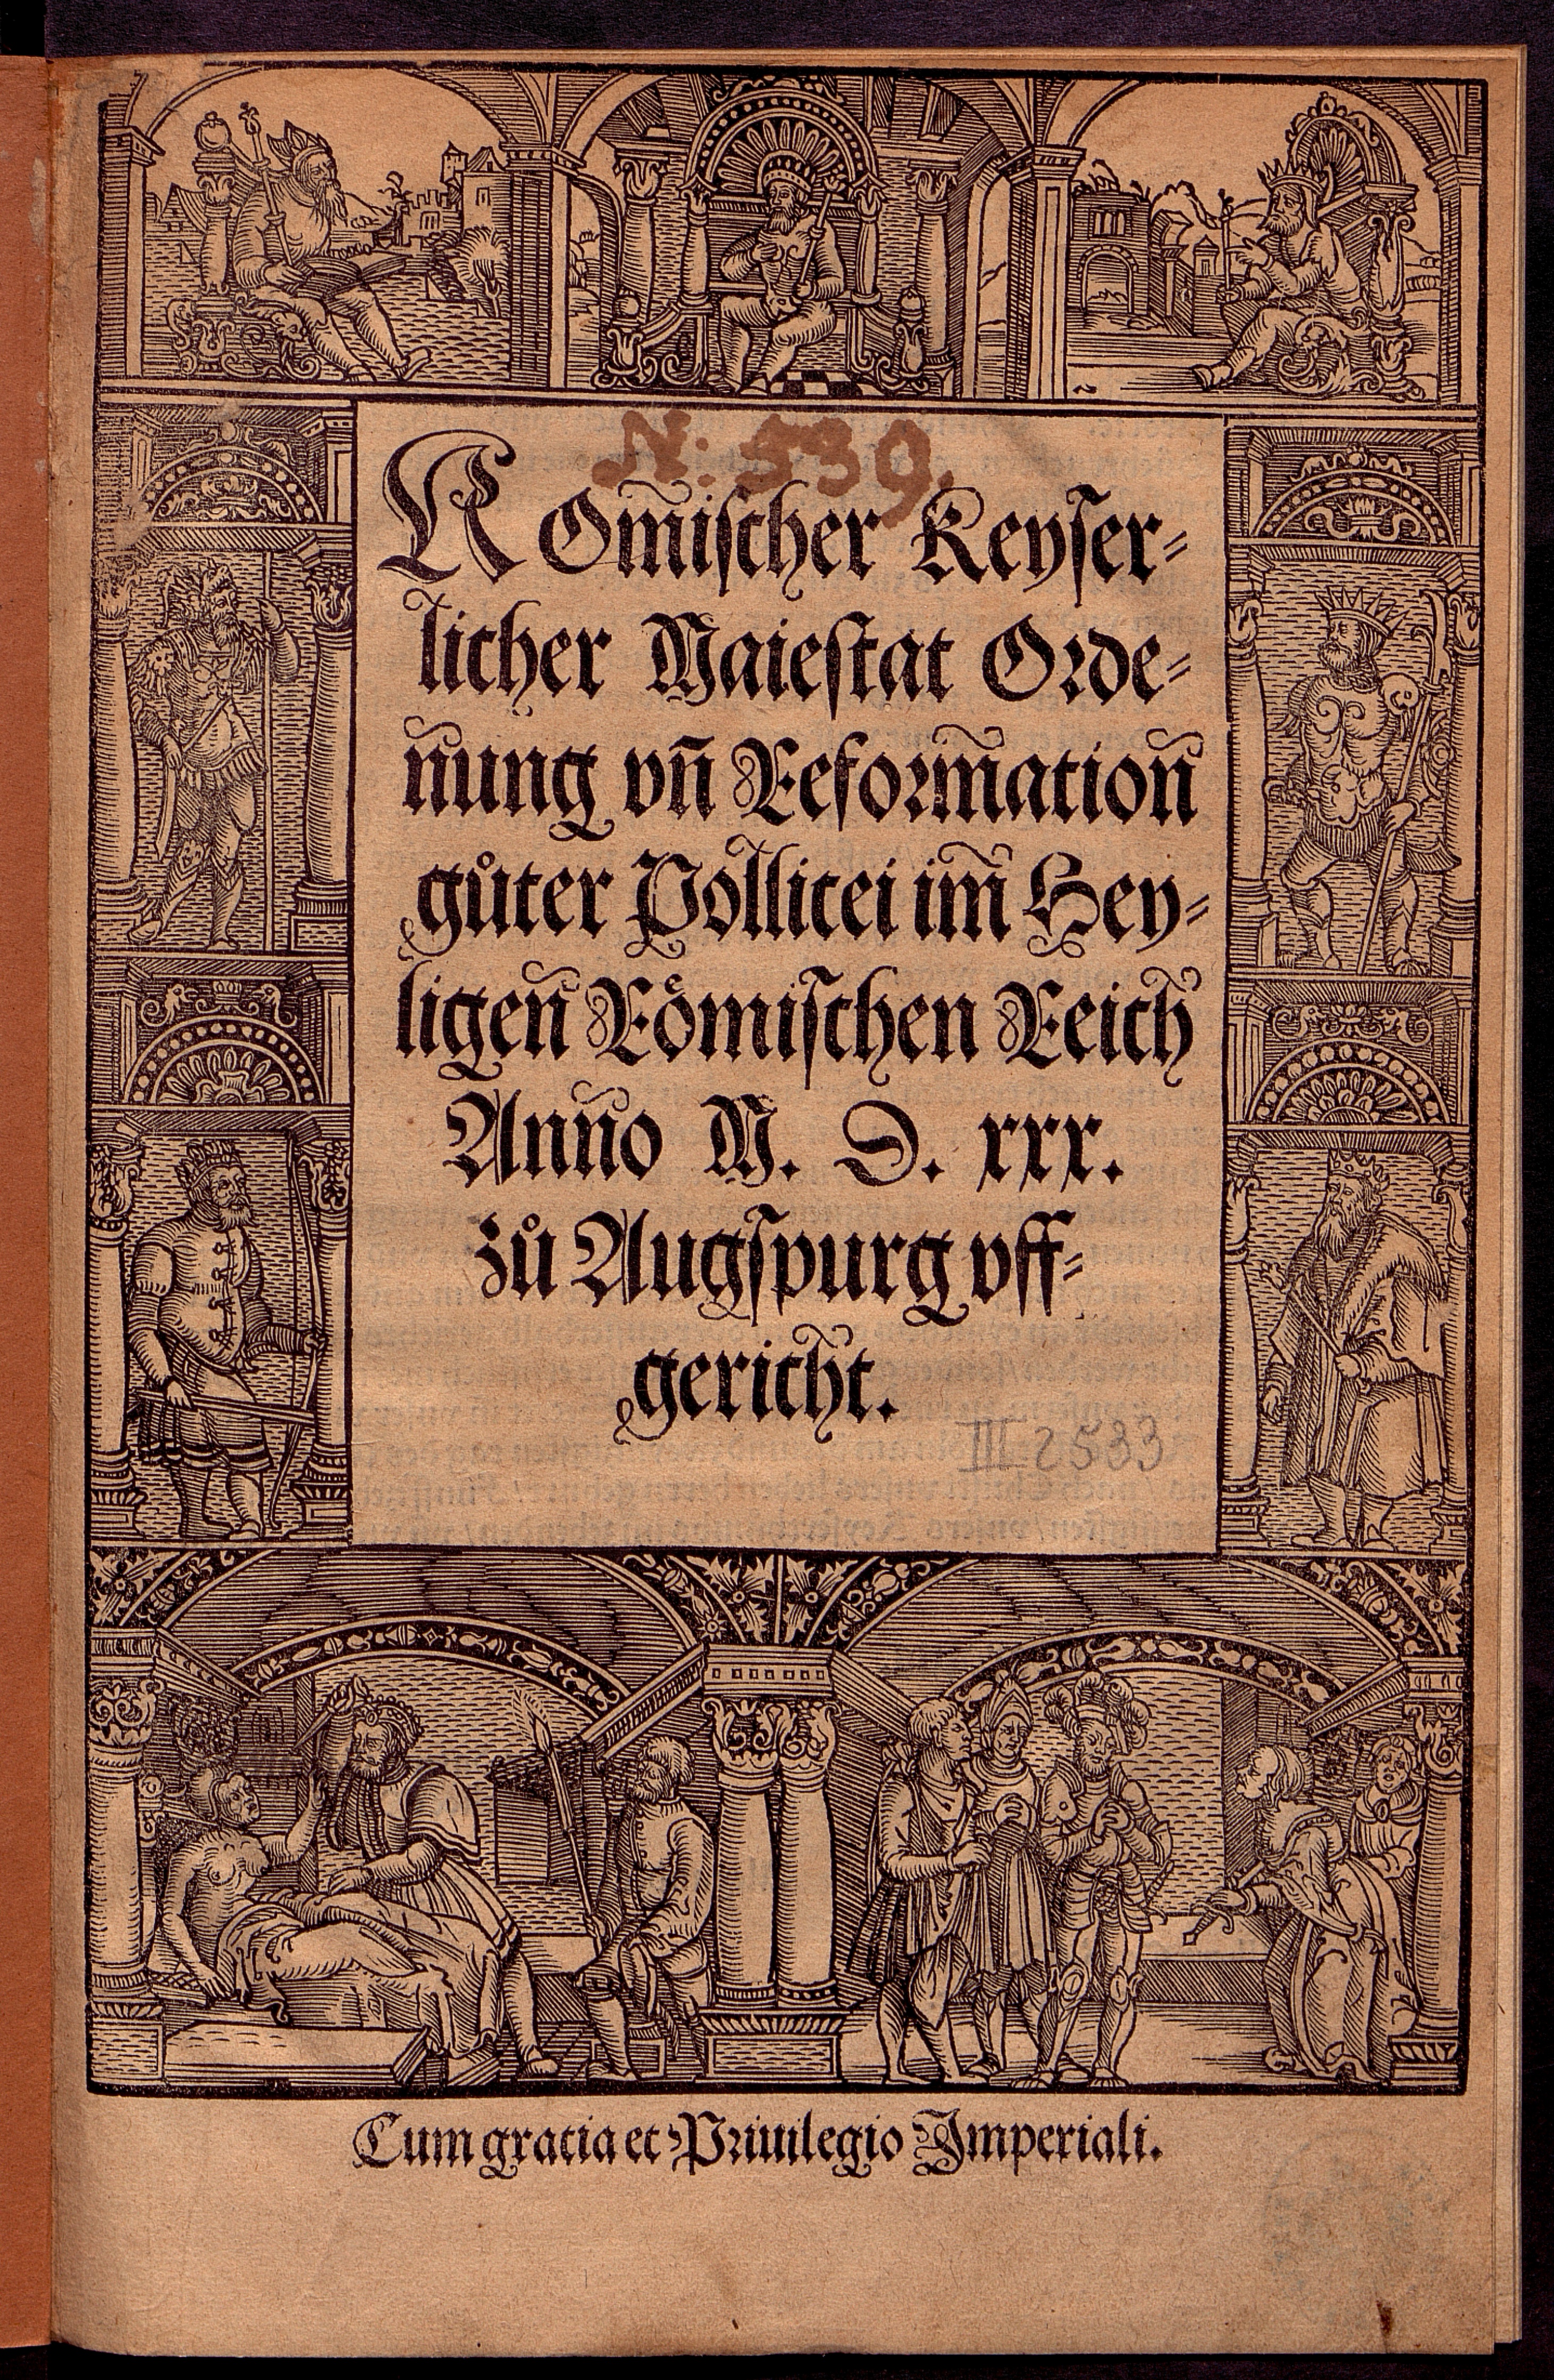 N: 539.
ROm̃iſcher Keyſer⸗
licher Maieſtat Orde⸗
ñung vñ Reform̃atioñ
gůter Pollicei im̃ Hey⸗
ligeñ Römiſchen Reich
Anño M. D. xxx.
zů Augſpurg vff⸗
gericht.
III 2533
Cum gratia et Priuilegio Imperiali.